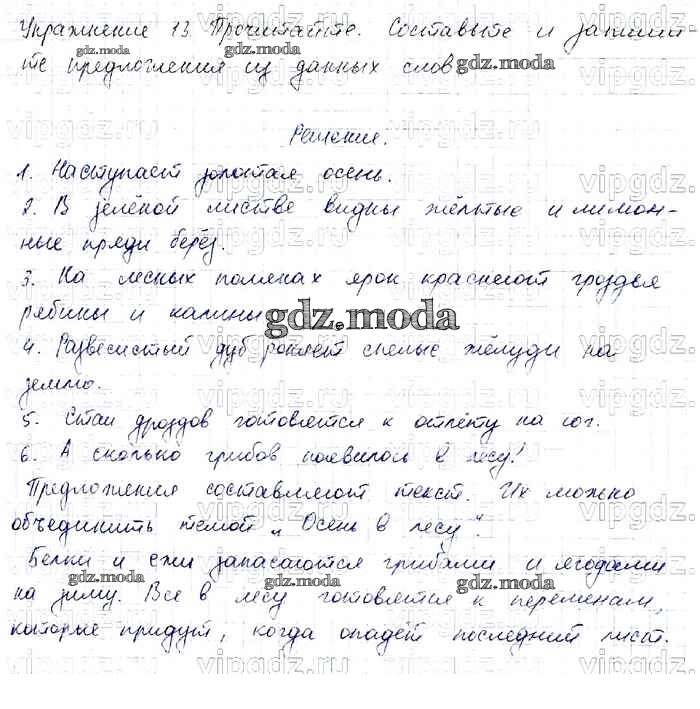 Упражнение 13. Прочитайте. Составьте и запиши-
те предложения из данных слов
Решение.
1. Наступает золотая осень.
2. В зелёной листве видны жёлтые и лимон-
ные пряди берёз.
3. На лесных полянах ярко краснеют гроздья
рябины и калины
4. Развесистый дуб роняет спелые жёлуди на
землю.
5. Стаи дроздов готовятся к отлёту на юг.
6. А сколько грибов появилось в лесу!
Предложения составляют текст. Их можно
объединить темой „Осень в лесу".
Белки и ежи запасаются грибами и ягодами
на зиму. Все в лесу готовятся к переменам,
которые придут, когда опадёт последний лист.
gdz.moda
vipgdz.ru